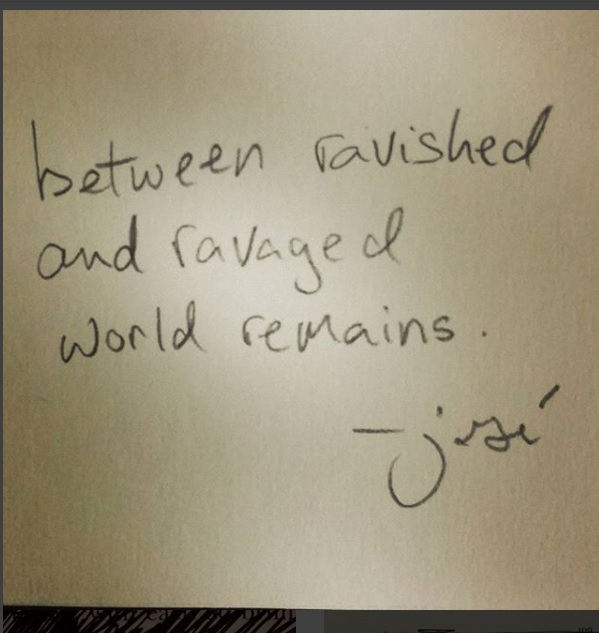 between ravished
and ravaged
world remains.
—josé